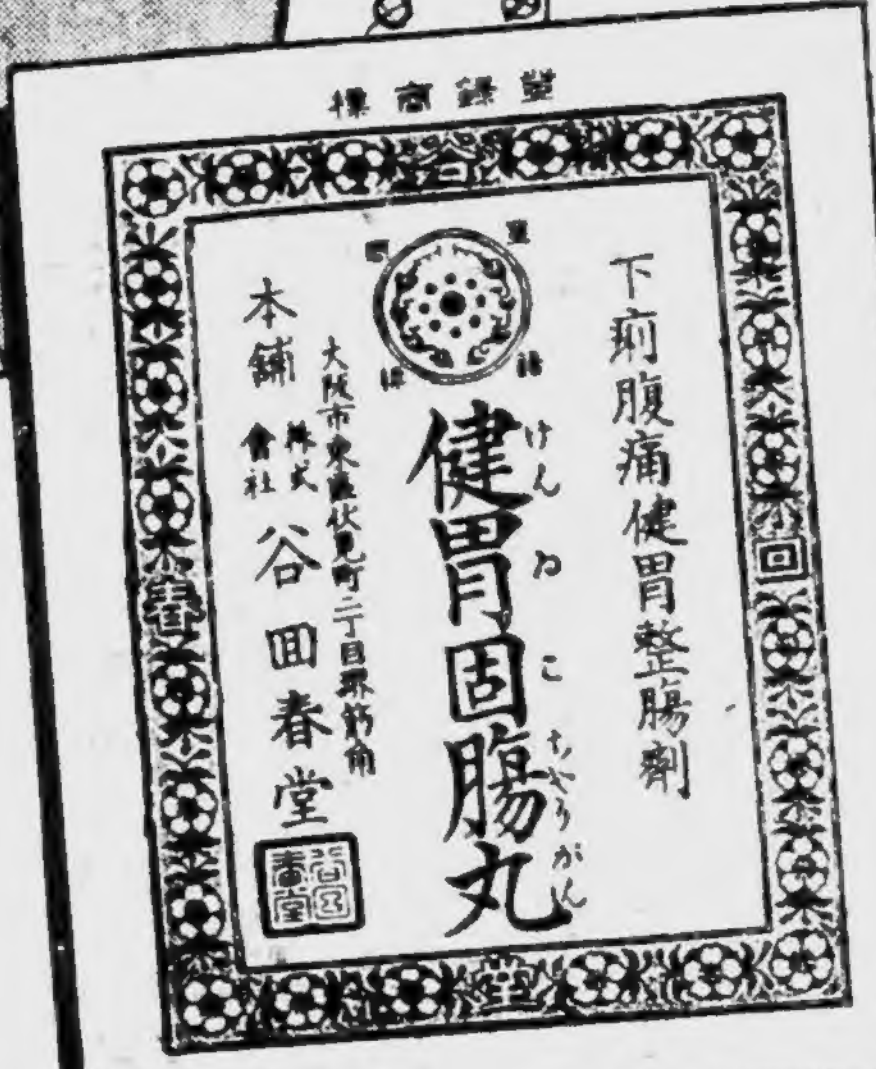 標商録登
下痢腹痛健胃整腸剤
健胃固腸丸
けんゐこちやうがん
大阪市東區伏見町二丁目堺筋角
本舗 株式會社 谷回春堂
谷
回
春
堂
谷回春堂